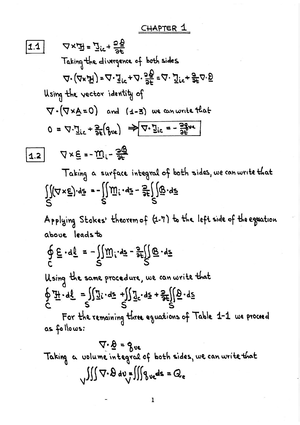 CHAPTER 1
1.1 ∇×H = J_ic + ∂D/∂t
Taking the divergence of both sides
∇·(∇×H) = ∇·J_ic + ∇·∂D/∂t = ∇·J_ic + ∂/∂t ∇·D
Using the vector identity of
∇·(∇×A = 0) and (1-3) we can write that
0 = ∇·J_ic + ∂/∂t (q_ve) ⇒ ∇·J_ic = -∂q_ve/∂t
1.2 ∇×E = -M_i - ∂B/∂t
Taking a surface integral of both sides, we can write that
∬_S (∇×E)·ds = -∬_S M_i·ds - ∂/∂t ∬_S B·ds
Applying Stokes' theorem of (1-7) to the left side of the equation
above leads to
∮_C E·dl = -∬_S M_i·ds - ∂/∂t ∬_S B·ds
Using the same procedure, we can write that
∮_C H·dl = ∬_S J_i·ds + ∬_S J_c·ds + ∂/∂t ∬_S D·ds
For the remaining three equations of Table 1-1 we proceed
as follows:
∇·D = q_ve
Taking a volume integral of both sides, we can write that
∭_V ∇·D dv = ∭_V q_ve ds = Q_e
1